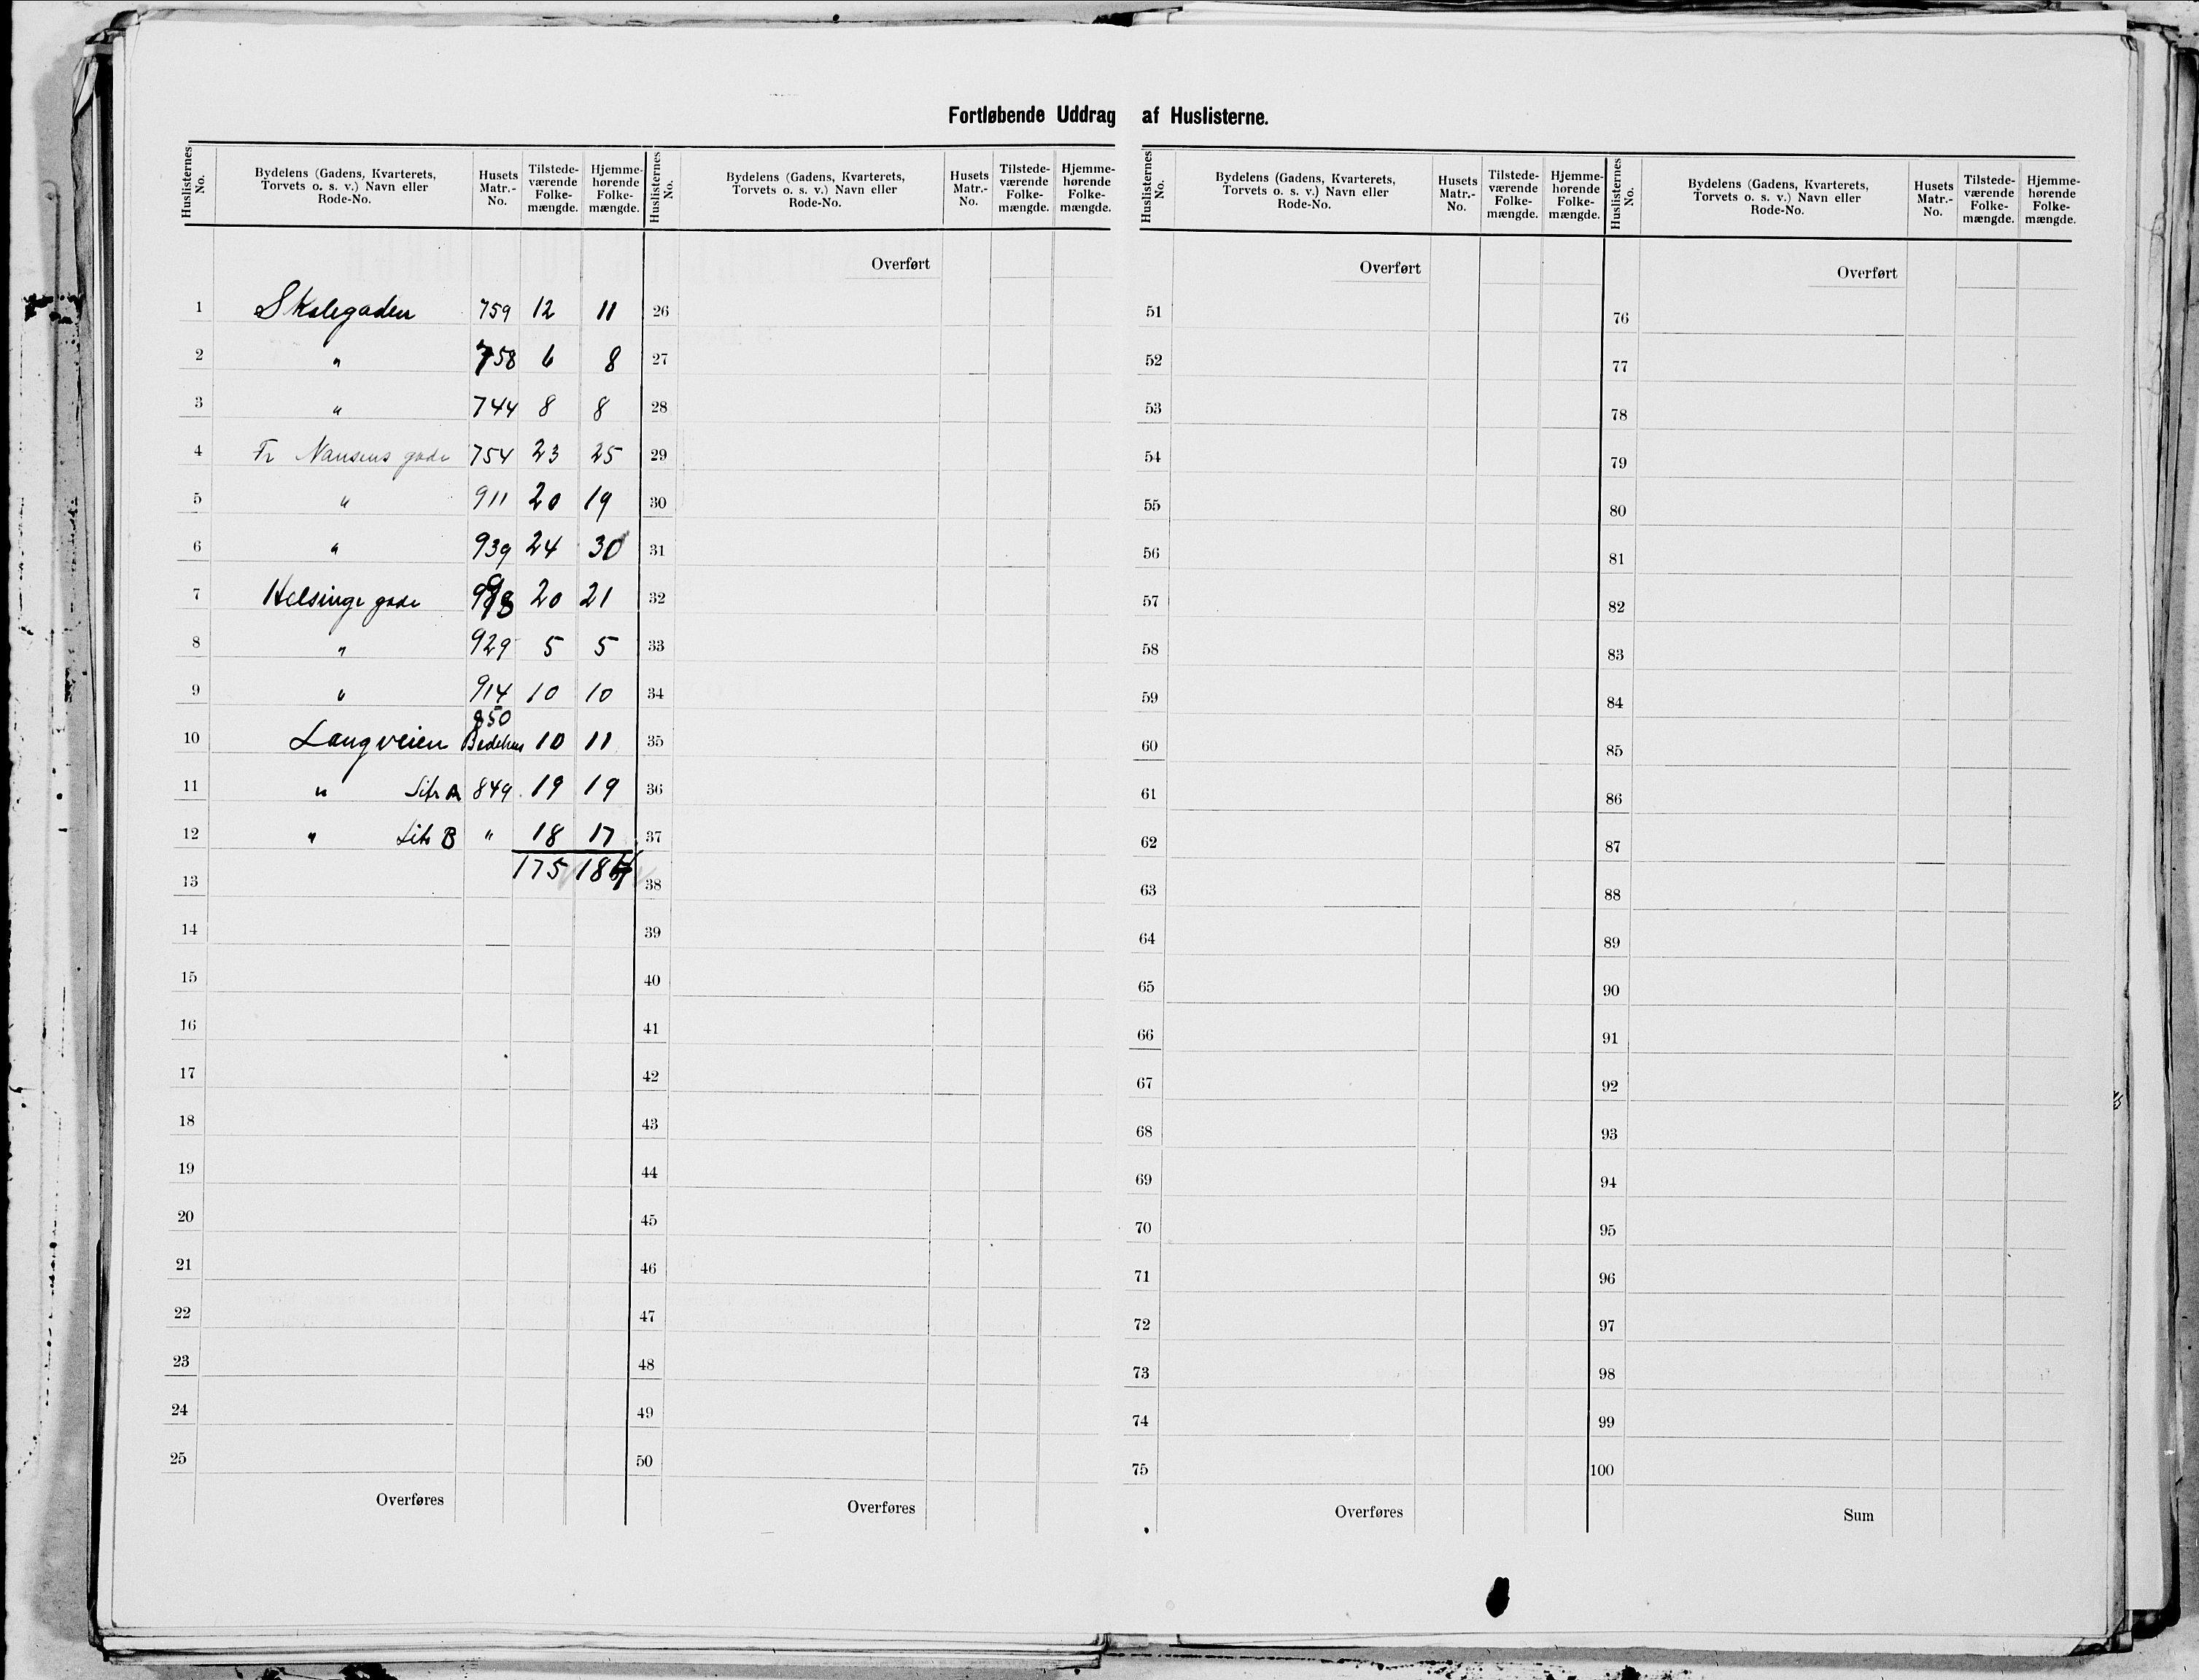 Fortløbende Uddrag af Huslisterne.
Huslisternes No. Bydelens (Gadens, Kvarterets, Torvets o. s. v.) Navn eller Rode-No. Husets Matr.-No. Tilstedeværende Folkemængde. Hjemmehørende Folkemængde.
1 Skolegaden 759 12 11
2 " 758 6 8
3 " 744 8 8
4 Fr Nansens gade 754 23 25
5 " 911 20 19
6 " 939 24 30
7 Helsinge gade 20 21
8 " 929 5 5
9 " 914 10 10
950
10 Langveien Bedehus 10 11
11 " Litr A 849 19 19
12 " Litr B " 18 17
175 184
13
14
15
16
17
18
19
20
21
22
23
24
25
Overføres
Huslisternes No. Bydelens (Gadens, Kvarterets, Torvets o. s. v.) Navn eller Rode-No. Husets Matr.-No. Tilstedeværende Folkemængde. Hjemmehørende Folkemængde.
Overført
26
27
28
29
30
31
32
33
34
35
36
37
38
39
40
41
42
43
44
45
46
47
48
49
50
Overføres
Huslisternes No. Bydelens (Gadens, Kvarterets, Torvets o. s. v.) Navn eller Rode-No. Husets Matr.-No. Tilstedeværende Folkemængde. Hjemmehørende Folkemængde.
Overført
51
52
53
54
55
56
57
58
59
60
61
62
63
64
65
66
67
68
69
70
71
72
73
74
75
Overføres
Huslisternes No. Bydelens (Gadens, Kvarterets, Torvets o. s. v.) Navn eller Rode-No. Husets Matr.-No. Tilstedeværende Folkemængde. Hjemmehørende Folkemængde.
Overført
76
77
78
79
80
81
82
83
84
85
86
87
88
89
90
91
92
93
94
95
96
97
98
99
100
Sum